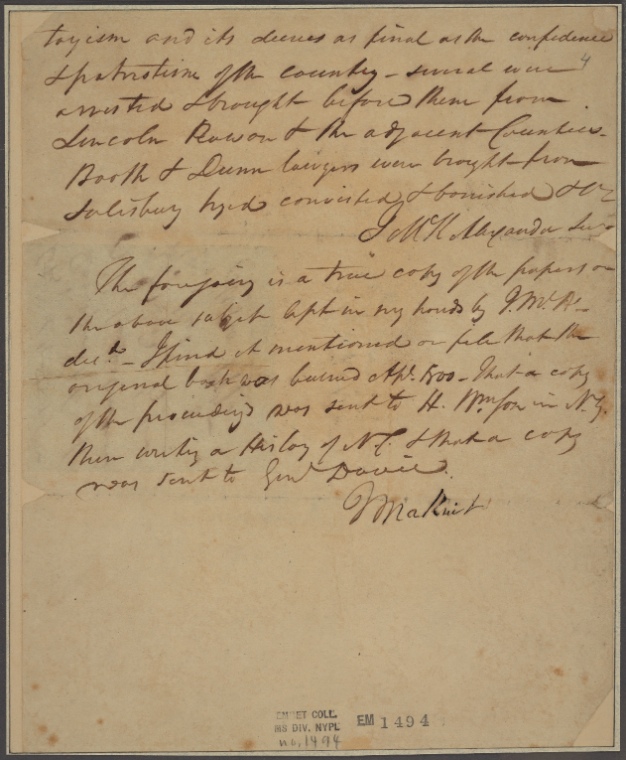 toryism and its decrees as final as the confidence
& patriotism of the country - several were 4
arrested & brought before them from
Lincoln Rowan & the adjacent Counties -
Booth & Dunn lawyers were brought from
Salisbury tryed convicted & banished &c
J McK Alexander Secy
The foregoing is a true copy of the papers on
the above subject left in my hands by J. McK. A.
decd - I find it mentioned on file that the
original book was burned Apl. 1800 - That a copy
of the proceedings was sent to H. Wmson in N.Y.
then writing a History of N.C. & that a copy
was sent to Genl Davie.
J McKnitt
EMMET COLL.
MS DIV. NYPL
no. 1494
EM 1494